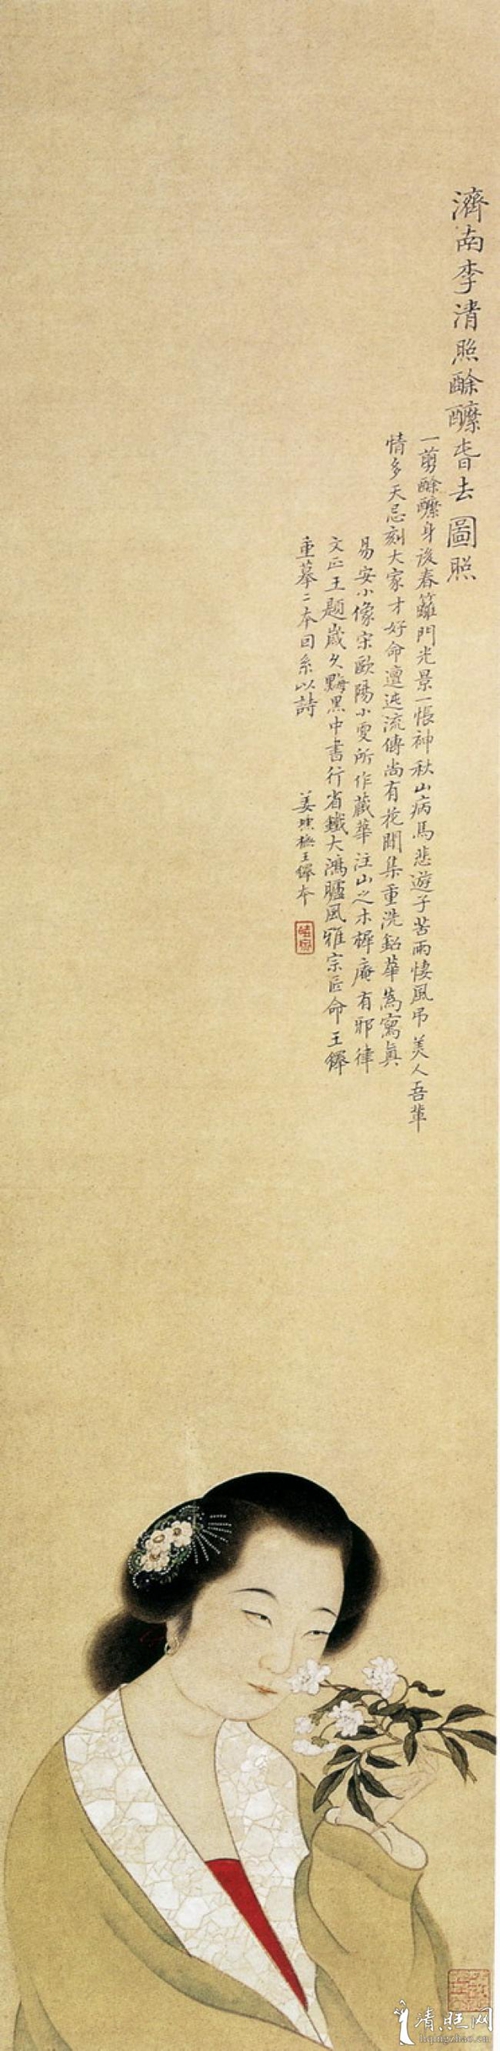 濟南李清照酴醿旾去圖照
一剪酴醿身後春籬門光景一悵神秋山病馬悲遊子苦雨悽風弔美人吾輩
情多天忌刻大家才好命邅迍流傳尚有花間集重洗鉛華為寫真
易安小像宋歐陽小叟所作藏華注山之木樨庵有邪律
文正王題歲久黣黑中書行省鐵大鴻臚風雅宗匠命王繹
重摹二本因系以詩
王繹本
清照网